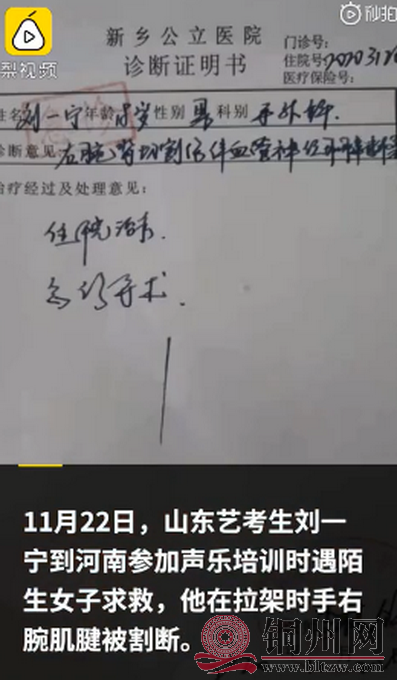 秒拍
梨视频
新乡公立医院
门诊号:
诊断证明书
住院号:
医疗保险号:
姓名 刘一宁 年龄 18岁 性别 男 科别 手外科
诊断意见: 右腕 切割伤伴血管神经
治疗经过及处理意见:
住院治疗.
急行手术.
11月22日，山东艺考生刘一
宁到河南参加声乐培训时遇陌
生女子求救，他在拉架时手右
腕肌腱被割断。
铜州网
www.bltzw.com